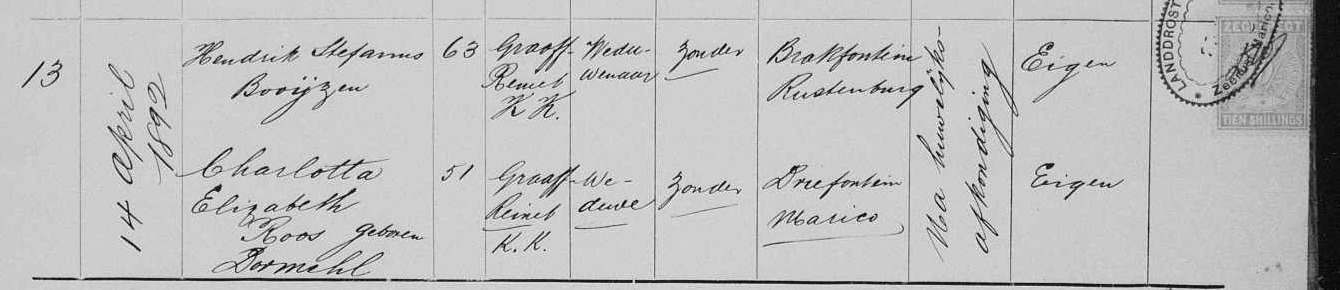 13
14 April
1892
Hendrik Stefanus
Booÿzen
63
Graaff-
Reinet
K K.
Wedu-
wenaar
Zonder
Brakfontein
Rustenburg
Na huwelijks-
afkondiging
Eigen
Charlotta
Elizabeth
Roos geboren
Dormehl
51
Graaff-
Reinet
K. K.
We-
duwe
Zonder
Driefontein
Marico
Eigen
LANDDROST
Zeerust Marico
TIEN SHILLINGS